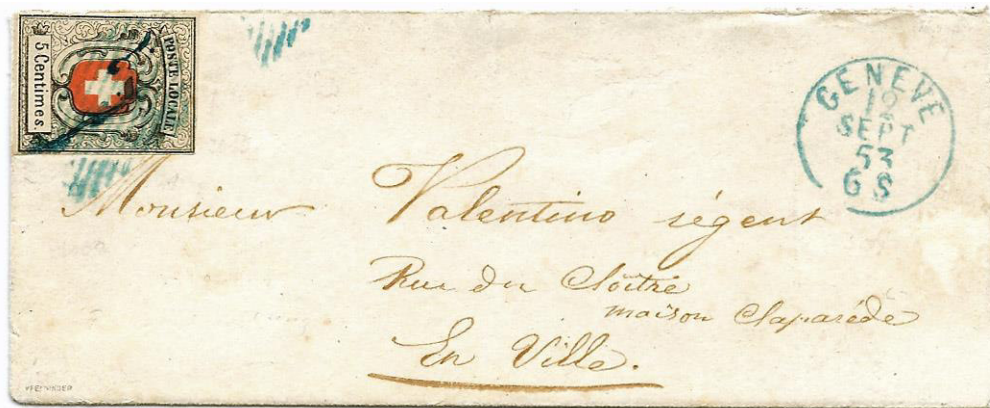 5 Centimes.
POSTE LOCALE
GENEVE
12
SEPT
53
6 S
Monsieur Valentino régent
Rue du Cloître
maison Claparéde
En Ville.